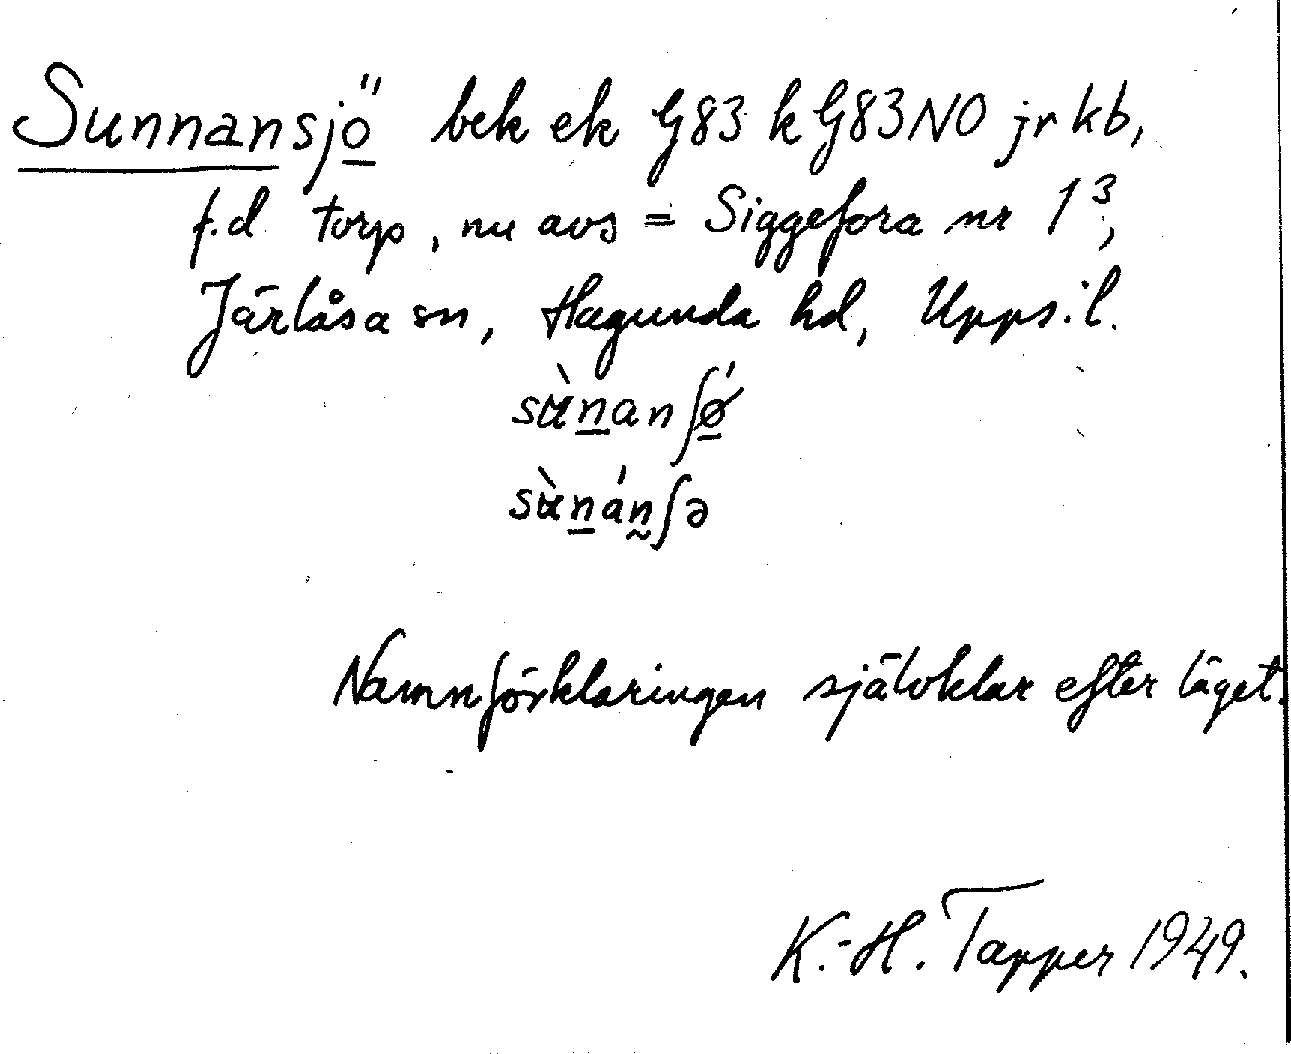 Sunnansjö bek ek G83 k G83NO jr kb,
f.d torp, nu avs = Siggefora nr 1³,
Järlåsa sn, Hagunda hd, Upps.l.
sùnanʃǿ
sùnánʃə
Namnförklaringen självklar efter läget.
K.-H. Tapper 1949.